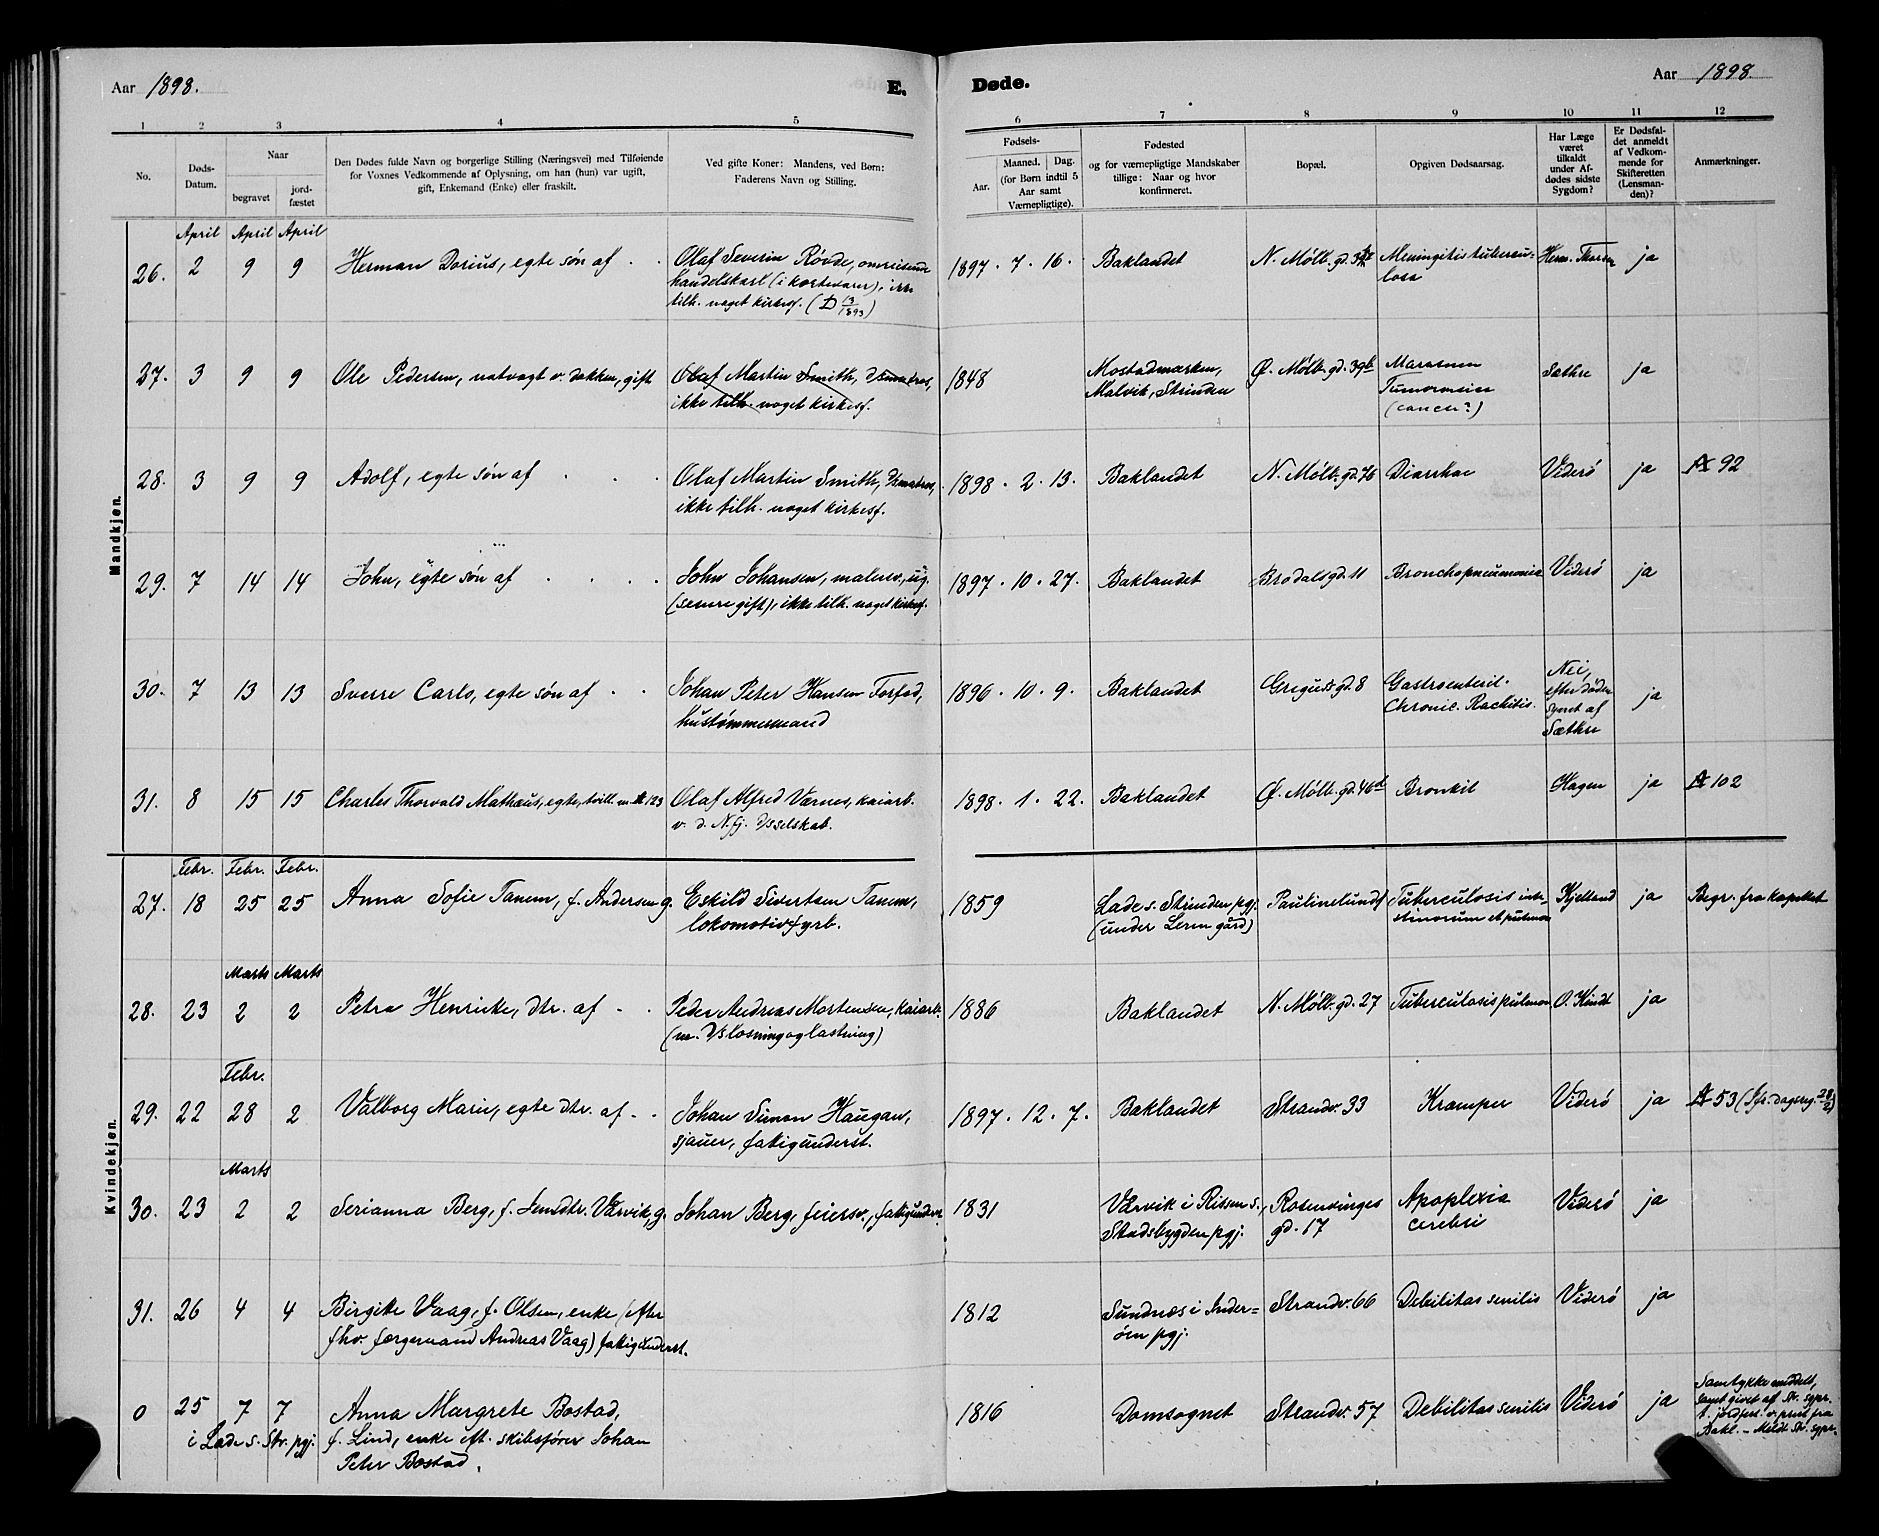 Aar 1898.
E.
Døde.
Aar 1898.
1 2 3 4 5 6 7 8 9 10 11 12
No.
Døds-
Datum.
Naar
begravet
jord-
fæstet
Den Dødes fulde Navn og borgerlige Stilling (Næringsvei) med Tilføiende
for Voxnes Vedkommende af Oplysning, om han (hun) var ugift,
gift, Enkemand (Enke) eller fraskilt.
Ved gifte Koner: Mandens, ved Børn:
Faderens Navn og Stilling.
Fødsels-
Aar.
Maaned. Dag.
(for Børn indtil 5
Aar samt
Værnepligtige).
Fødested
og for værnepligtige Mandskaber
tillige: Naar og hvor
konfirmeret.
Bopæl.
Opgiven Dødsaarsag.
Har Læge
været
tilkaldt
under Af-
dødes sidste
Sygdom?
Er Dødsfal-
det anmeldt
af Vedkom-
mende for
Skifteretten
(Lensman-
den)?
Anmærkninger.
Mandkjøn.
April April April
26. 2 9 9 Herman Dorius, egte søn af
Olaf Severin Røvde, omreisende
handelskarl (i kortevarer), ikke
tilh. noget kirkesf. (D 13/1893)
1897. 7. 16. Baklandet
N. Møllb. gd.
Meningitis tubercu-
losa
ja
27. 3 9 9 Ole Pedersen, natvagt v. dokken, gift
Olaf Martin Smith,
ikke tilh. noget kirkesf.
1848
Mostadmarken,
Malvik, Strinden
Ø. Møllb. gd. 39b
Marasmus
(cancer?)
Sæthre ja
28. 3 9 9 Adolf, egte søn af
Olaf Martin Smith, Dsmatros,
ikke tilh. noget kirkesf.
1898. 2. 13. Baklandet
N. Møllb. gd. 76
Diarrhoe
Viderö ja A 92
29. 7 14 14 John, egte søn af
John Johansen, maleres., ug.
(senere gift), ikke tilh. noget kirkesf.
1897. 10. 27. Baklandet
Brodalsgd. 11
Bronchopneumonia
Viderö ja
30. 7 13 13 Sverre Carlo, egte søn af
Johan Peter Hansen Forfod,
hustømmermand
1896. 10. 9. Baklandet
Gregus gd. 8
Gastroenterit.
Chronic. Rachitis.
Nei,
efter døden
synet af
Sæthre
ja
31. 8 15 15 Charles Thorvald Mathæus, egte, tvill. m. A 123
Olaf Alfred Værnes, kaiarb.
v. d. N.fj. Dsselskab.
1898. 1. 22. Baklandet
Ø. Møllb. gd. 46d
Bronkit
Hagen ja A 102
Kvindekjøn.
Febr. Febr. Febr.
27. 18 25 25 Anna Sofie Tanem, f. Andersen g.
Eskild Sivertsen Tanem,
lokomotivfyrb.
1859
Lade s. Strinden pgj.
(under Leren gård)
Paulinelund
Tuberculosis inte-
stinorum et pulmon
Kjelland ja Begr. fra kapellet
Marts Marts
28. 23 2 2 Petra Henricke, dtr. af
Peder Andreas Mortensen, kaiarb.
(m. Ds losning og lastning)
1886
Baklandet
N. Møllb. gd. 27
Tuberculosis pulmon
O. Hindt ja
Febr.
29. 22 28 2 Valborg Marie, egte dtr. af
Johan Simon Haugan,
sjauer, fatigunderst.
1897. 12. 7. Baklandet
Strandv. 33
Kramper
Viderö ja A 53 (Sfr. dagreg. 28/2)
Marts
30. 23 2 2 Serianna Berg, f. Jensdtr. Værvik, g.
Johan Berg, feiersv., fatigunderst.
1831
Værvik i Rissen s.,
Stadsbygden pgj.
Rosenvinges
gd. 17
Apoplexia
cerebri
Viderö ja
31. 26 4 4 Birgitte Vaag, f. Olsen, enke (efter
fhv. færgemand Andreas Vaag) fatigunderst.
1812
Sundnæs i Inder-
øen pgj.
Strandv. 66
Debilitas senilis
Viderö ja
0 25 7 7 Anna Margrete Bostad,
i Lade s. Str. pgj. f. Lind, enke eft. skibsfører Johan
Peter Bostad.
1816
Domsognet
Strandv. 57
Debilitas senilis
Viderö ja
Samtykke meddelt,
samt givet af Str. sgpr.
t. jordfest. v. prest fra
Bakl. - Meldt Str. sgpr.